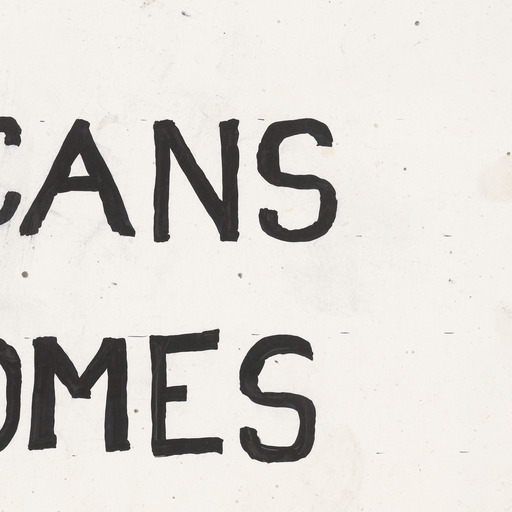 CANS
OMES